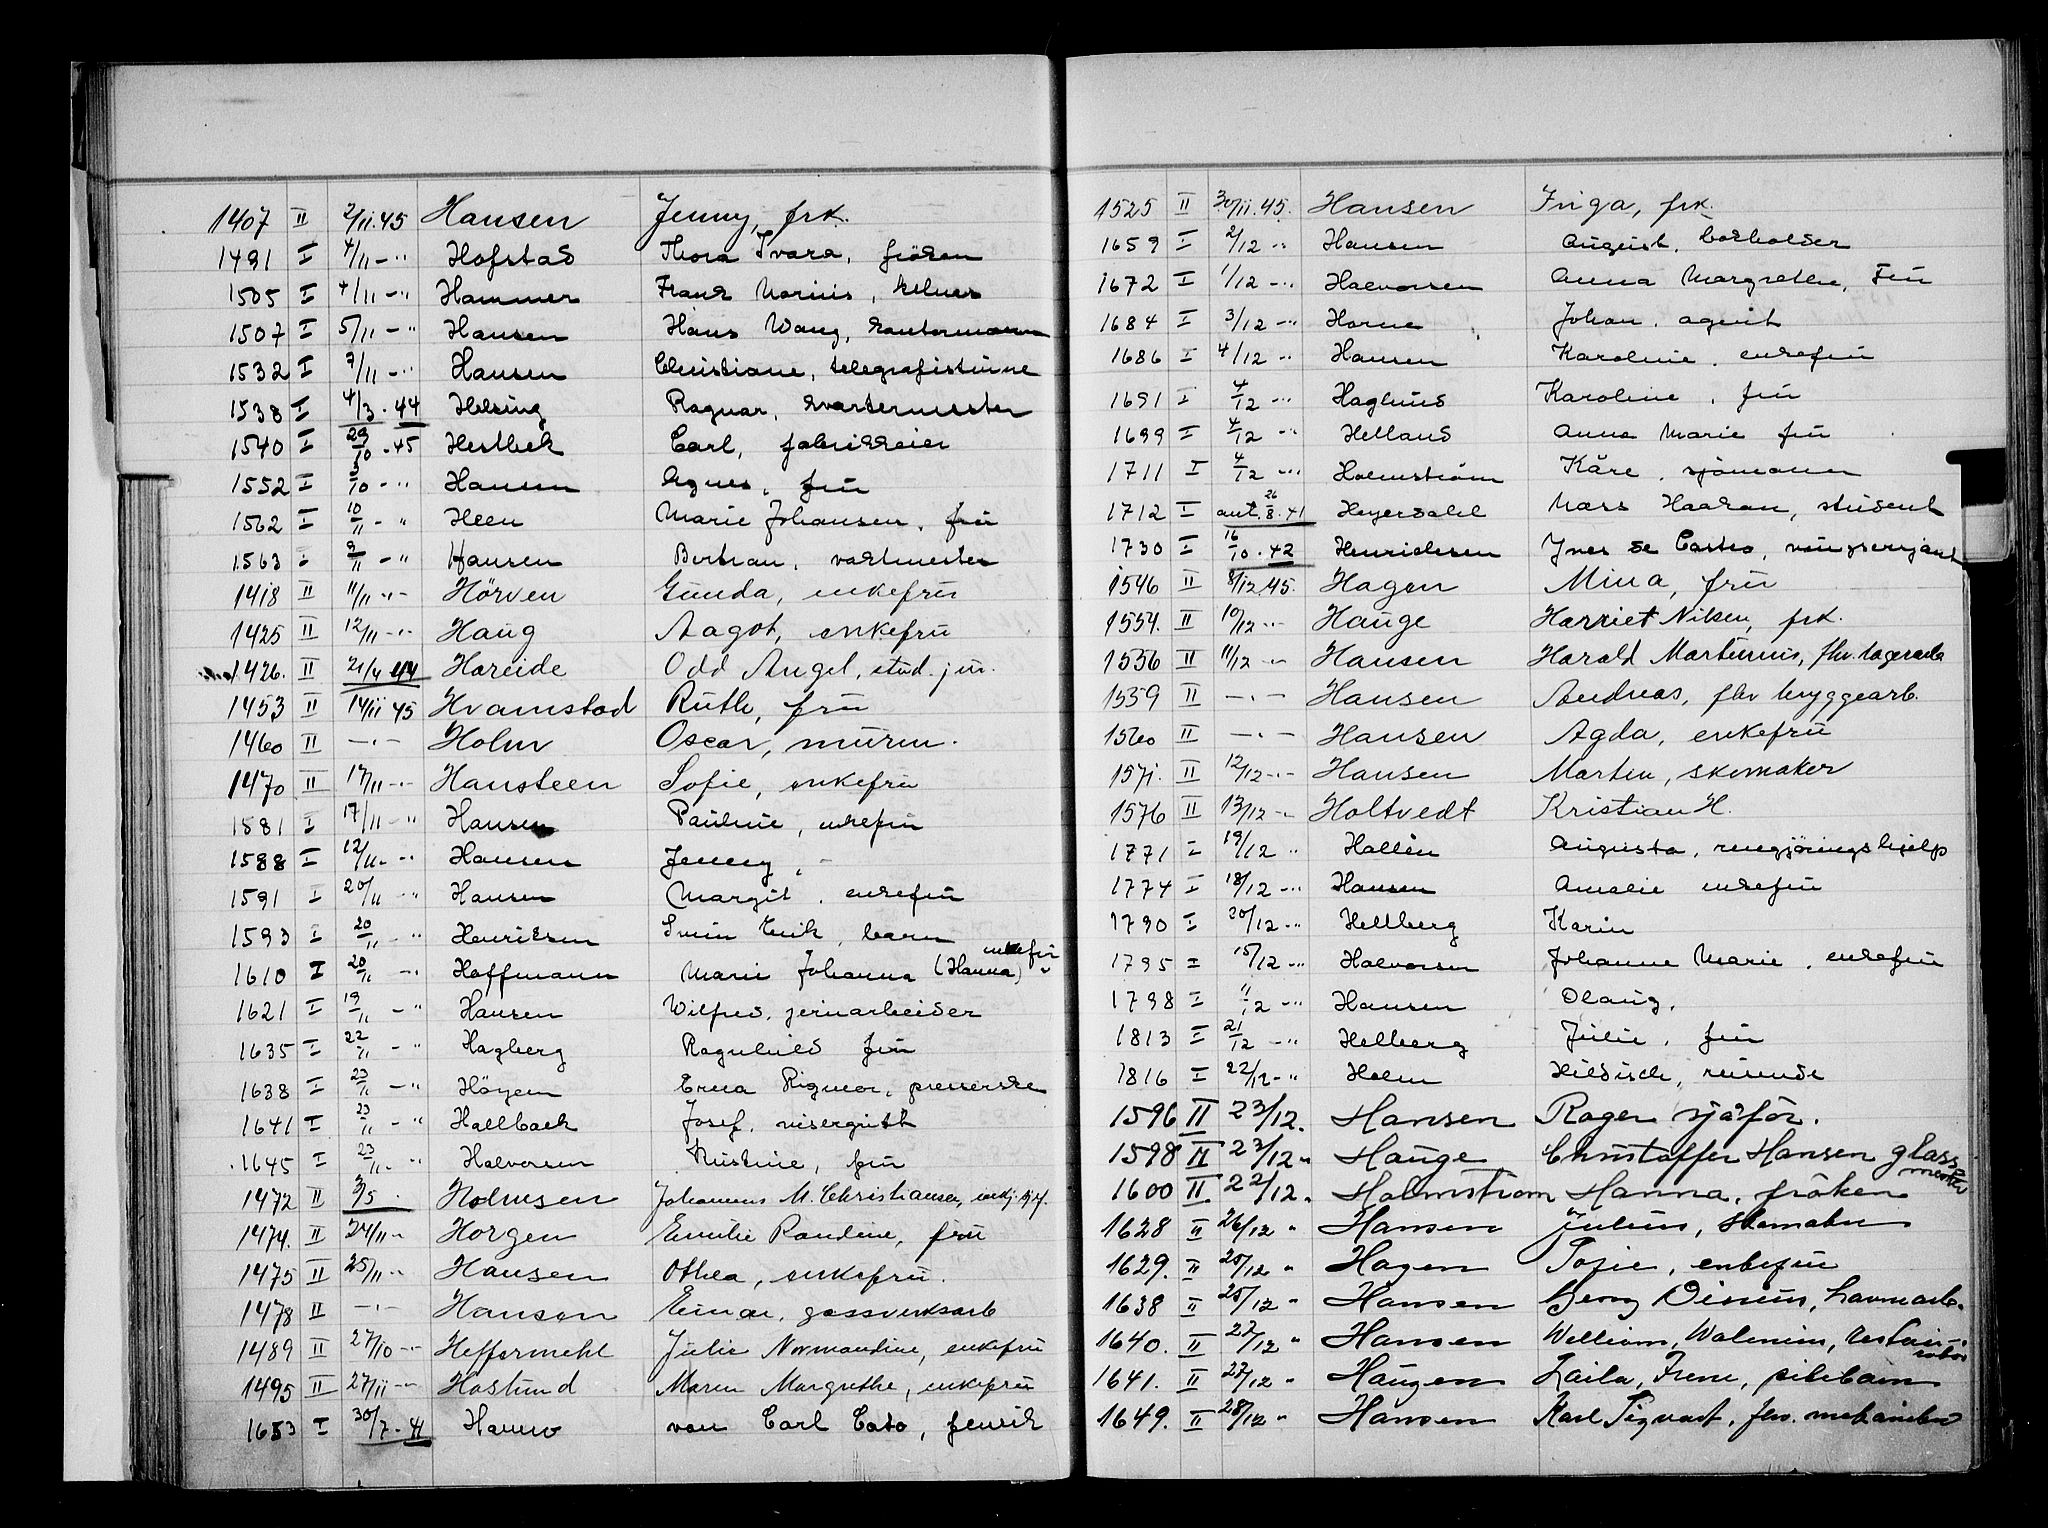 1407 II 2/11.45 Hansen Jenny, frk.
1491 I 4/11 - " Hofstad Thora Tvara, fröken
1505 I 4/11 - " Hammer Frank Marius, kelner
1507 I 5/11 - " Hansen Hans Wang, kontormann
1532 I 7/11 - " Hansen Christiane, telegrafistinne
1538 I 4/3 . 44 Helsing Ragnar, kvartermester
1540 I 29/10 . 45 Hestbek Carl, fabrikkeier
1552 I 5/10 - " Hansen Agnes, fru
1562 I 10/11 - " Heen Marie Johansen, fru
1563 I 9/11 - " Hansen Bertran, vaktmester
1418 II 11/11 - " - Hörven Gunda, enkefru
1425 II 12/11 - " - Haug Aagot, enkefru
1426. II 21/4 44 Hareide Odd Angel, stud. jur.
1453 II 14/11 45 Hvamstad Ruth, fru
1460 II - " - Holm Oscar, murm.
1470 II 17/11 - " - Hansteen Sofie, enkefru
1581 I 17/11 - " Hansen Pauline, enkefru
1588 I 12/11 - " Hansen Jenny, "
1591 I 20/11 - " Hansen Margit, enkefru
1593 I 20/11 - " Henriksen Svein Erik, barn
1610 I 20/11 - " Hoffmann Marie Johanna (Hanna), enkefru
1621 I 19/11 - " Hansen Wilfred, jernarbeider
1635 I 22/11 - " Hagberg Ragnhild fru
1638 I 23/11 - " Höyem Erna Rigmor, presserske
1641 I 23/11 - " Hallback Josef, visergutt
1645 I 23/11 - " Halvorsen Kristine, fru
1472 II 3/5 . Holmsen Johannes M. Christiansen,
1474. II 24/11 - " Horgen Emilie Randine, fru
1475 II 25/11 - " Hansen Othea, enkefru.
1478 II - " - Hansen Einar, gassverksarb
1489 II 27/10 - " Heffermehl Julie Normandine, enkefru
1495 II 27/11 - " Haslund Maren Margrethe, enkefru
1653 I 30/7 - 41 Hanno von Carl Cato, fenrik
1525 II 30/11.45. Hansen Inga, frk.
1659 I 2/12 - " Hansen August, bokholder
1672 I 1/12 - " Halvorsen Anna Margrethe, Fru
1684 I 3/12 - " Horne Johan, agent
1686 I 4/12 - " Hansen Karoline, enkefru
1691 I 4/12 - " Haglund Karoline, fru
1699 I 4/12 - " Helland Anna Marie fru
1711 I 4/12 - " Holmström Kåre, sjömann
1712 I ant. 26/8 . 41 Heyerdahl Mass Haakon, student
1730 I 16/10 . 42 Henriksen Yves de Castro, vingsersjant
1546 II 8/12 45. Hagen Mina, fru
1554. II 10/12 - " - Hauge Harriet Nilsen, frk.
1556 II 11/12 - " - Hansen Harald Martinius, fhv. lagerarb
1559 II - " - Hansen Andreas, fhv bryggearb.
1560 II - " - Hansen Agda, enkefru
1571. II 12/12 - " - Hansen Martin, skomaker
1576 II 13/12 - " Holtvedt Kristian H.
1771 I 19/12 " Hallén Augusta, rengjöringshjelp
1774 I 18/12 - " Hansen Amalie enkefru
1790 I 20/12 - " Hellberg Karin
1795 I 15/12 - " Halvorsen Johanne Marie, enkefru
1798 I 11/12 - " Hansen Olaug,
1813 I 21/12 - " Helberg Julie, fru
1816 I 22/12 - " Holm Hildisch, reisende
1596 II 23/12. Hansen Roger sjåför.
1598 II 23/12 " Hauge Christoffer Hansen glassmester
1600 II. 22/12. " Holmstrøm Hanna, fröken
1628 II 26/12 " Hansen Julius, skomaker
1629. II 25/12 " Hagen Sofie, enkefru
1638 II 25/12 " Hansen Georg Disenius, havnearb.
1640. II 27/12 " Hansen William, Walenius,
1641. II 27/12 " Haugen Laila, Irene, pikebarn
1649. II 28/12 " Hansen Karl Sigvart, fhv. mekaniker